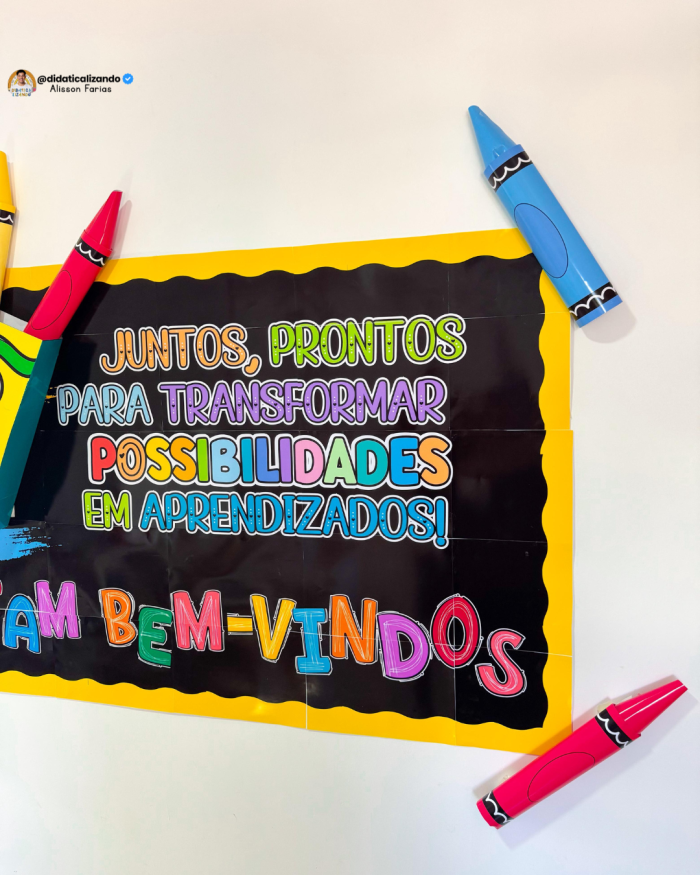 @didaticalizando
Alisson Farias
JUNTOS, PRONTOS
PARA TRANSFORMAR
POSSIBILIDADES
EM APRENDIZADOS!
AM BEM-VINDOS